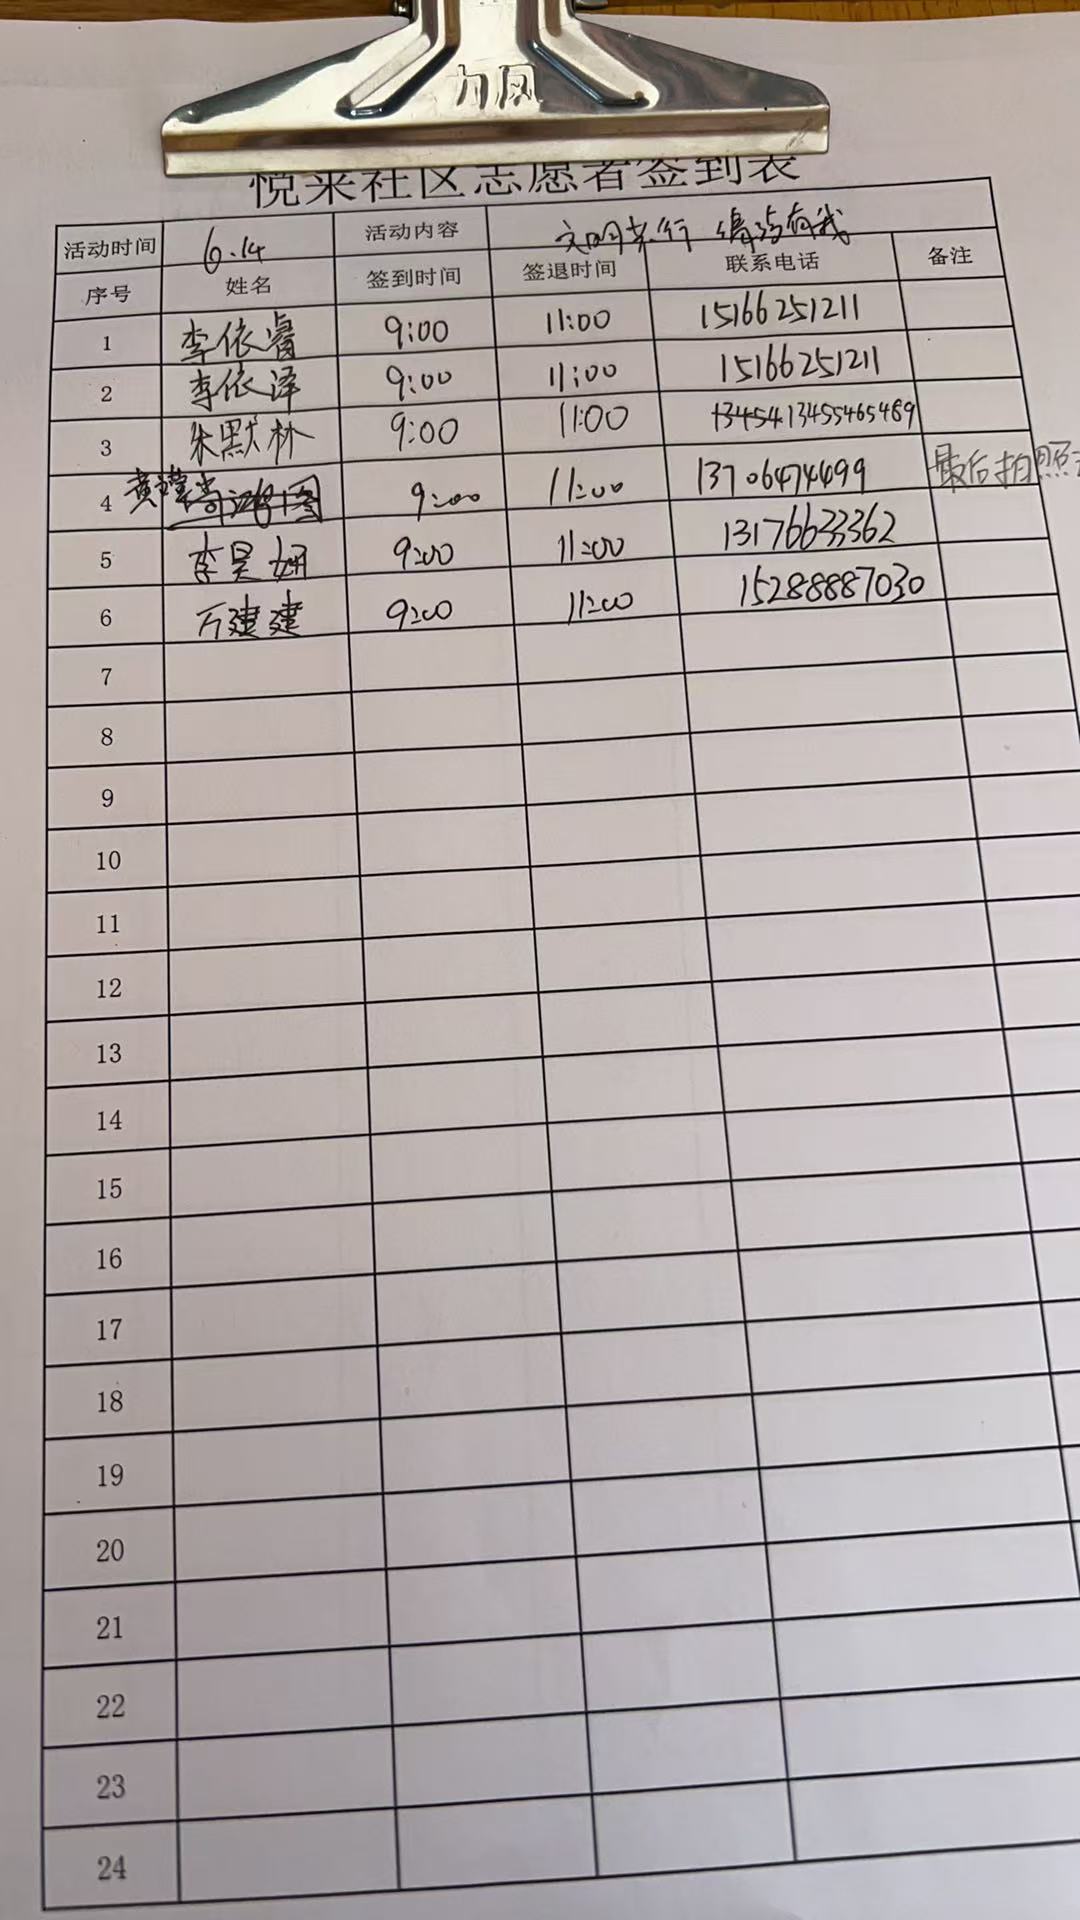 力风
悦来社区志愿者签到表
活动时间 6.14 活动内容 文明 行 有我
序号 姓名 签到时间 签退时间 联系电话 备注
1 李依睿 9:00 11:00 15166251211
2 李依泽 9:00 11:00 15166251211
3 朱默林 9:00 11:00 13454 13455465489
4 黄 9:00 11:00 13706474499 最后拍照
5 李昊妍 9:00 11:00 13176633362
6 万建建 9:00 11:00 15288887030
7
8
9
10
11
12
13
14
15
16
17
18
19
20
21
22
23
24